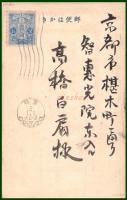 郵便はかき
京都市椹木町通
智惠光院東入
高橋白扇様